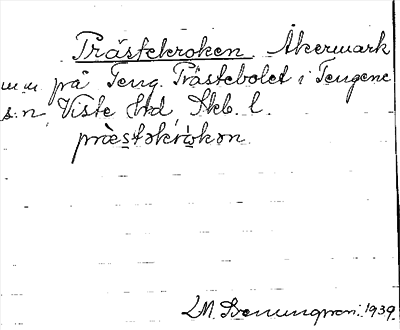 Prästekroken Åkermark
m m på Teng. Prästebolet i Tengene
s:n, Viste hd, Skb. l.
præ̀stəkrókən
1939